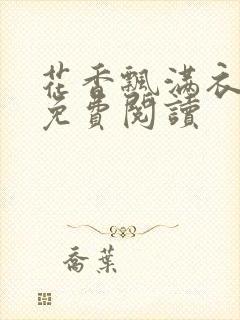 花香飄滿衣
免費閱讀
喬葉